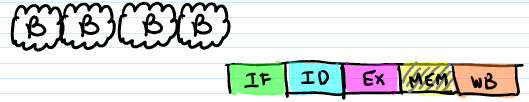 B B B B
IF ID EX MEM WB